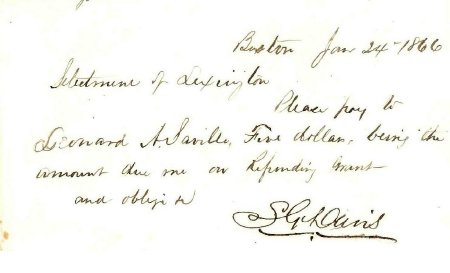 Boston Jan 24 - 1866
Selectmene of Lexington
Please pay to
Leonard A. Saville, Five dollars, being the
amount due me on Refunding Grant
and oblige
Davis